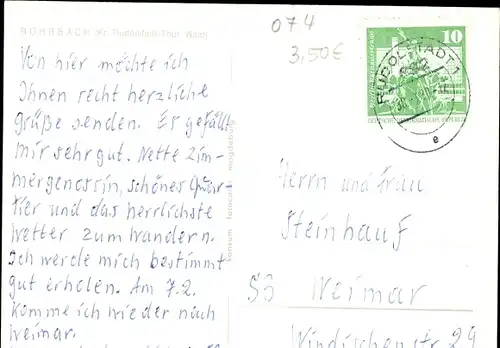 ROHRBACH (Kr. Rudolstadt Thür. Wald)
074
3,50€
10
RUDOLSTADT 1
e
DEUTSCHE DEMOKRATISCHE REPUBLIK
Von hier möchte ich
Ihnen recht herzliche
Grüße senden. Es gefällt
mir sehr gut. Nette Zim-
mergenossin, schönes Quar-
tier und das herrlichste
Wetter zum Wandern.
Ich werde mich bestimmt
gut erholen. Am 7.2.
komme ich wieder nach
Weimar.
konsum fotocolor magdeburg
Herrn und Frau
Steinhauf
53 Weimar
Windischenstr. 29